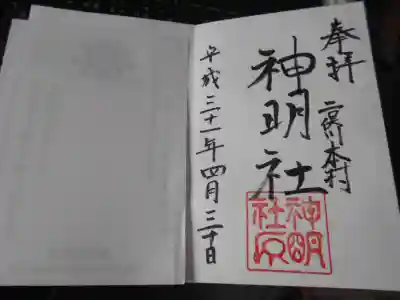 奉拝
神明社
平成三十一年四月三十日
神明
社印